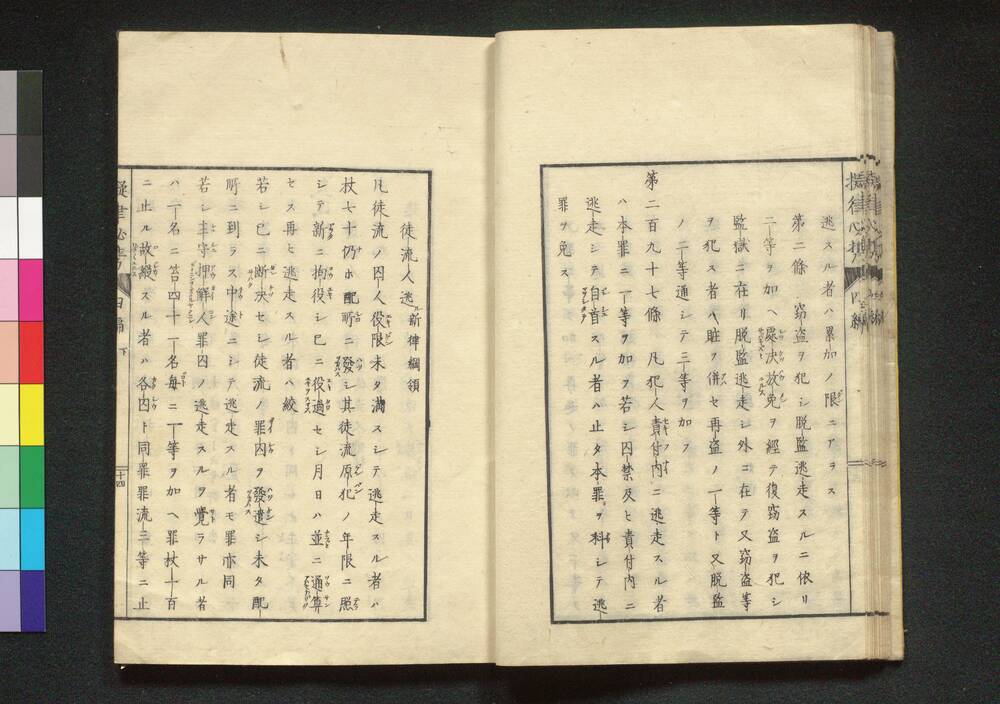 逃スル者ハ累加ノ限ニアラス
第二條 窃盗ヲ犯シ脱監逃走スルニ依リ
二等ヲ加ヘ處決放免ヲ經テ復窃盗ヲ犯シ
監獄ニ在リ脱監逃走シ外ニ在テ又窃盗等
ヲ犯ス者ハ贓ヲ併セ再盗ノ一等ト又脱監
ノ二等通シテ三等ヲ加フ
第二百九十七條 凡犯人責付内ニ逃走スル者
ハ本罪ニ一等ヲ加フ若シ囚禁及ヒ責付内ニ
逃走シテ自首スル者ハ止タ本罪ヲ科シテ逃
罪ヲ免ス
徒流人逃 新律綱領
凡徒流ノ囚人役限未タ満スシテ逃走スル者ハ
杖七十仍ホ配所ニ發シ其徒流原犯ノ年限ニ照
シテ新ニ拘役シ已ニ役過セシ月日ハ並ニ通算
セス再ヒ逃走スル者ハ絞
若シ已ニ断決セシ徒流ノ罪囚ヲ發遣シ未タ配
所ニ到ラス中途ニシテ逃走スル者モ罪亦同
若シ主守押解人罪囚ノ逃走スルヲ覺ラサル者
ハ一名ニ笞四十一名毎ニ一等ヲ加ヘ罪杖一百
ニ止ル故縱スル者ハ各囚ト同罪罪流三等ニ止
十四